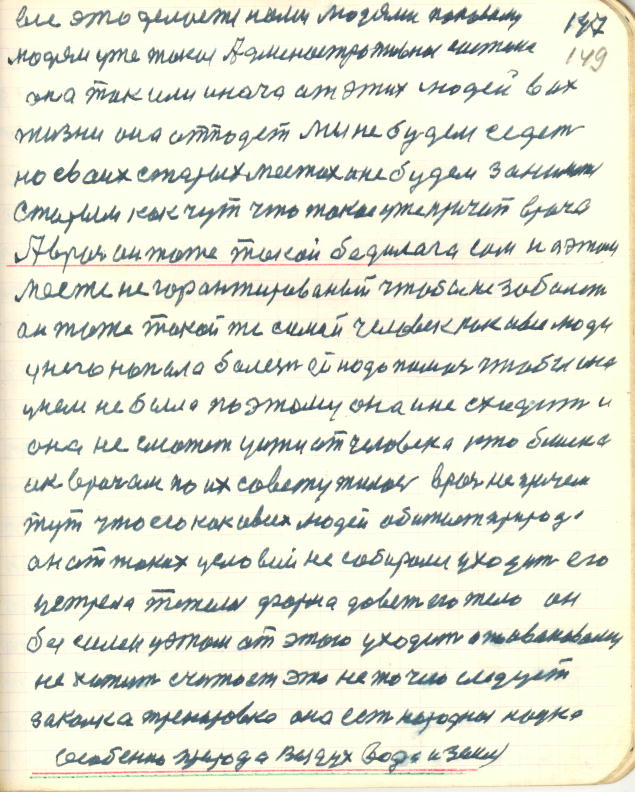 все это делается нами людями поповому 147
людям уже такая Административная система 149
она так или иначе от этих людей в их
жизни она отпадет Мы не будем седеть
на своих старых местах и не будем занимать
старым как чут что такое уже причит врача
А врач он тоже такой бедолага сам на этом
месте не горантированый чтобы не заболет
он тоже такой же самый человек как и все люди
у него напала болезн ей надо помоч чтобы она
у нем не была поэтому она и не сходит и
она не сможет уйти от человека кто близка
к врачам по их совету жилос врач не причем
тут что его как и всех людей обижает природа
он от таких условий не собирали уходит его
устрела тяжела форма довет его тело он
бессилен у этом от этого уходит
не хотит считает это не точно следует
закалка тренировка она ест народна наука
Особенно природа Воздух вода и земля